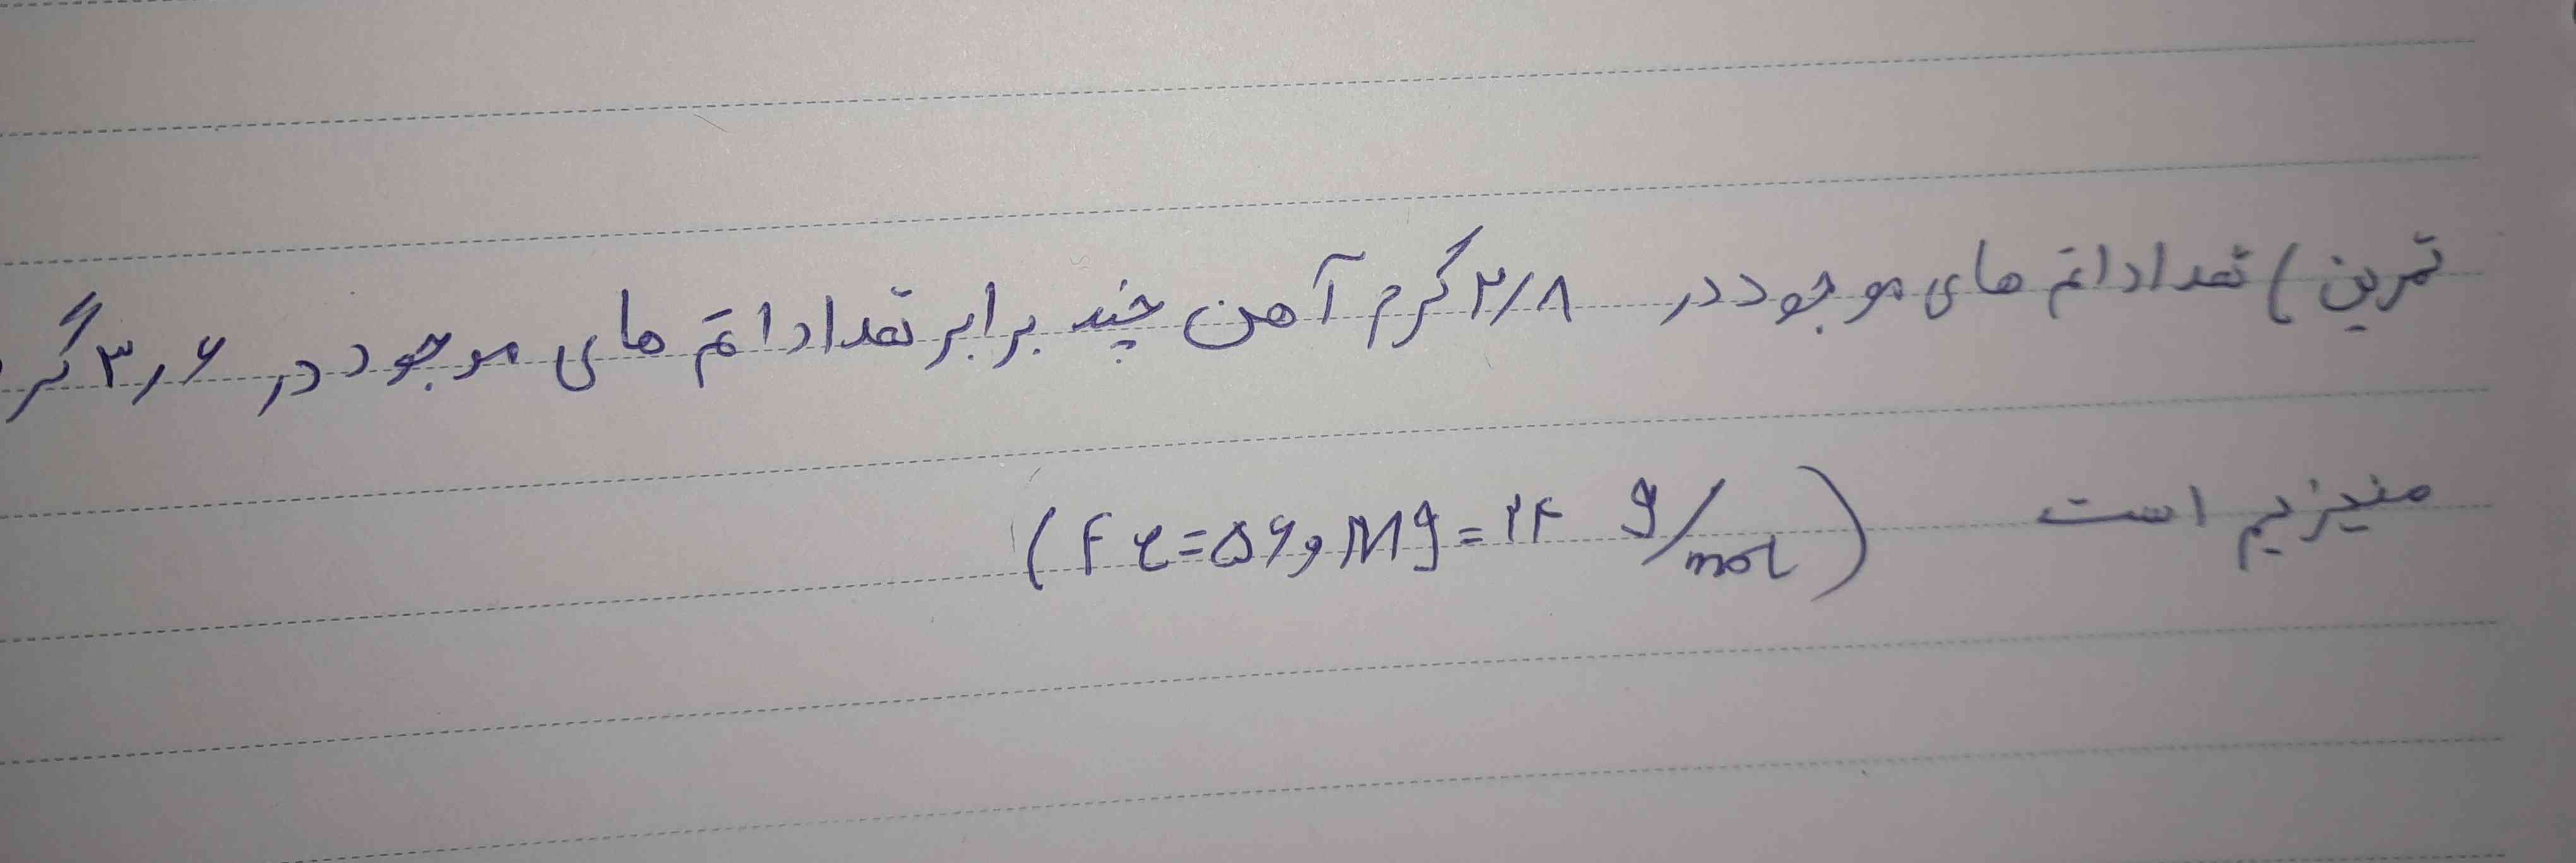 تمرین) تعداد اتم های موجود در ۲/۸ گرم آهن چند برابر تعداد اتم های موجود در ۳٫۶ گر
منیزیم است (Fe=۵۶ و Mg=۲۴ g/mol)